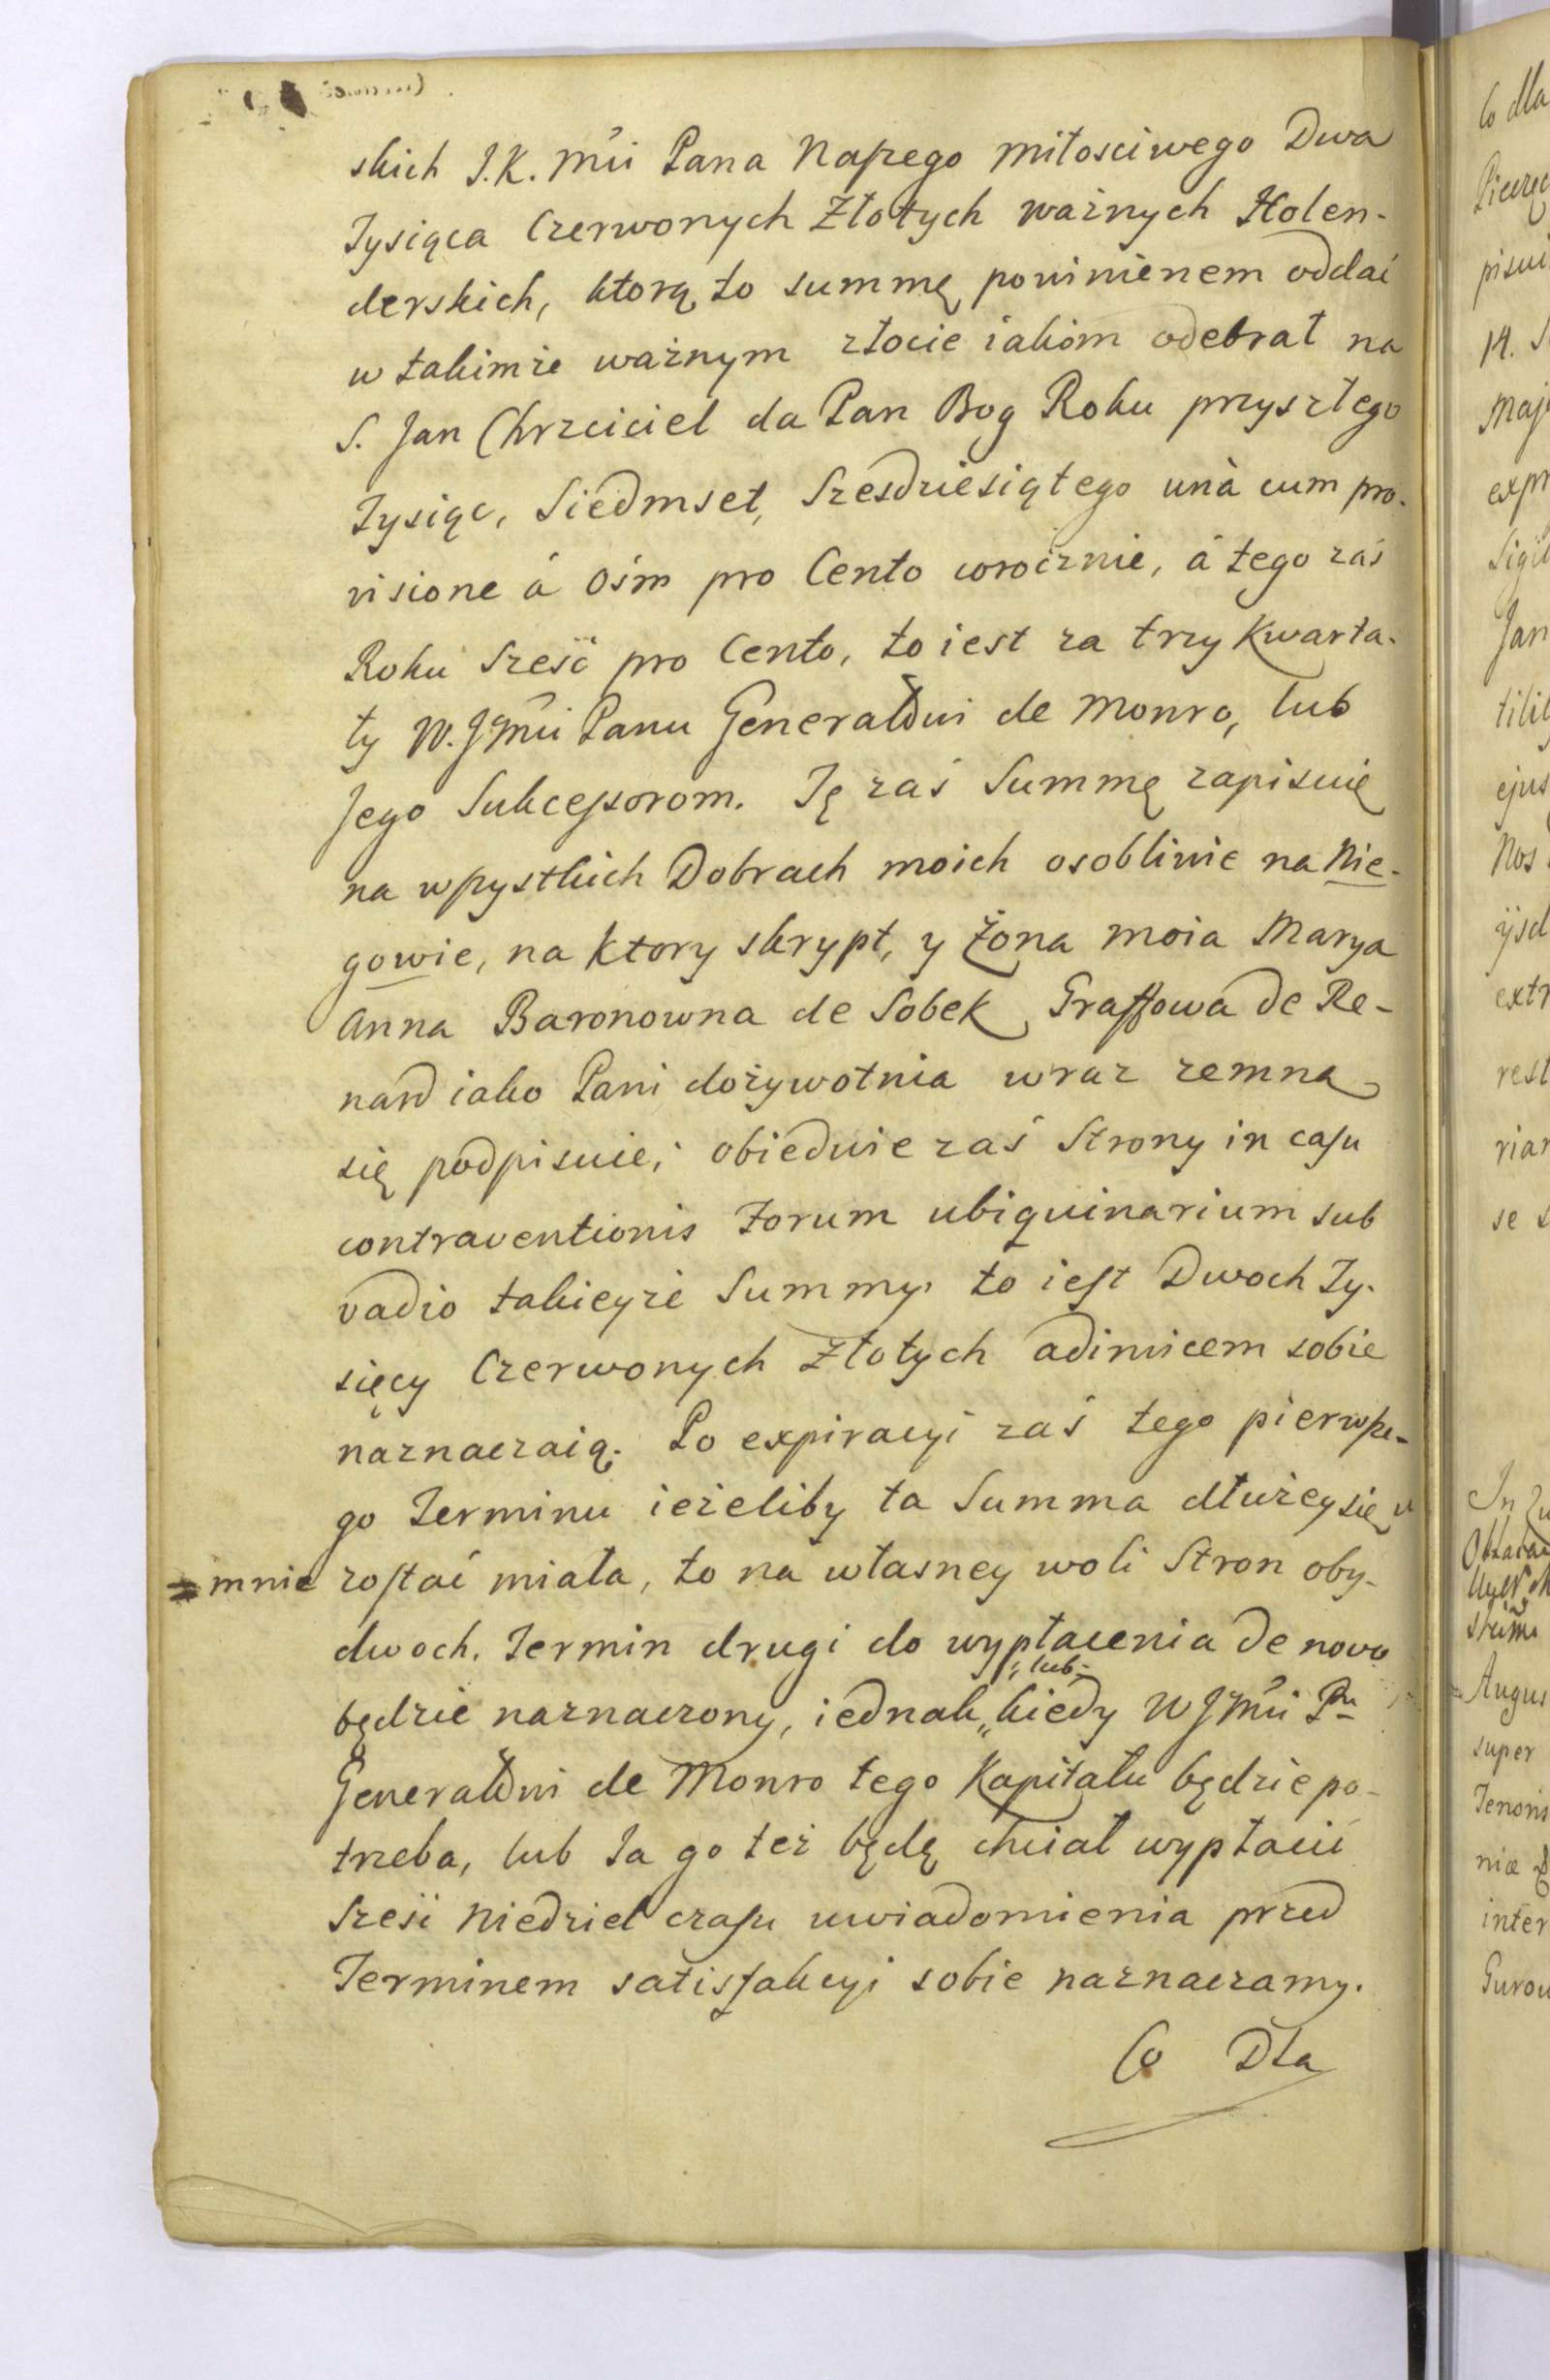 skich J.K. Mci Pana Naszego miłosciwego Dwa
Tysiąca Czerwonych Złotych ważnych Holen-
derskich, ktorą to summę powinienem oddać
w takimże ważnym złocie iakom odebrał na
S. Jan Chrzciciel da Pan Bog Roku przyszłego
Tysiąc, Siedmset, Szesdziesiątego unà cum pro-
visione á ośm pro Cento corocznie, á tego zaś
Roku Sześć pro Cento, to iest za trzy Kwarta-
ły W. Jmći Panu Generałowi de Monro, lub
Jego Sukcessorom. Tę zaś Summę zapisuię
na wszystkich Dobrach moich osobliwie na Nie-
gowie, na Ktory skrypt, y Żona moia Marya
Anna Baronowna de Sobek Graffowa de Re-
nard iako Pani dożywotnia wraz zemną
się podpisuie; obiedwie zaś Strony in casu
contraventionis Forum ubiquinarium sub
vadio takieyże Summy, to iest Dwoch Ty-
sięcy Czerwonych Złotych adinvicem sobie
naznaczaią. Po expiracyi zaś tego pierwsze-
go Terminu ieżeliby ta Summa dłużey się u
= mnie zostać miała, to na własney woli Stron oby-
dwoch. Termin drugi do wypłacenia de novo
będzie naznaczony, iednak „ lub kiedy W Jmći Pu
Generałowi de Monro tego Kapitału będzie po-
trzeba, lub Ja go też będę chciał wypłacić
Sześć Niedziel czasu uwiadomienia przed
Terminem satisfakcyi sobie naznaczamy.
Co Dla
Co dla
14. S
Maj
expr
Jan
ejus
Nos
extr
rest
rian
se s
Augus
super
Tenoris
inter
Gurow